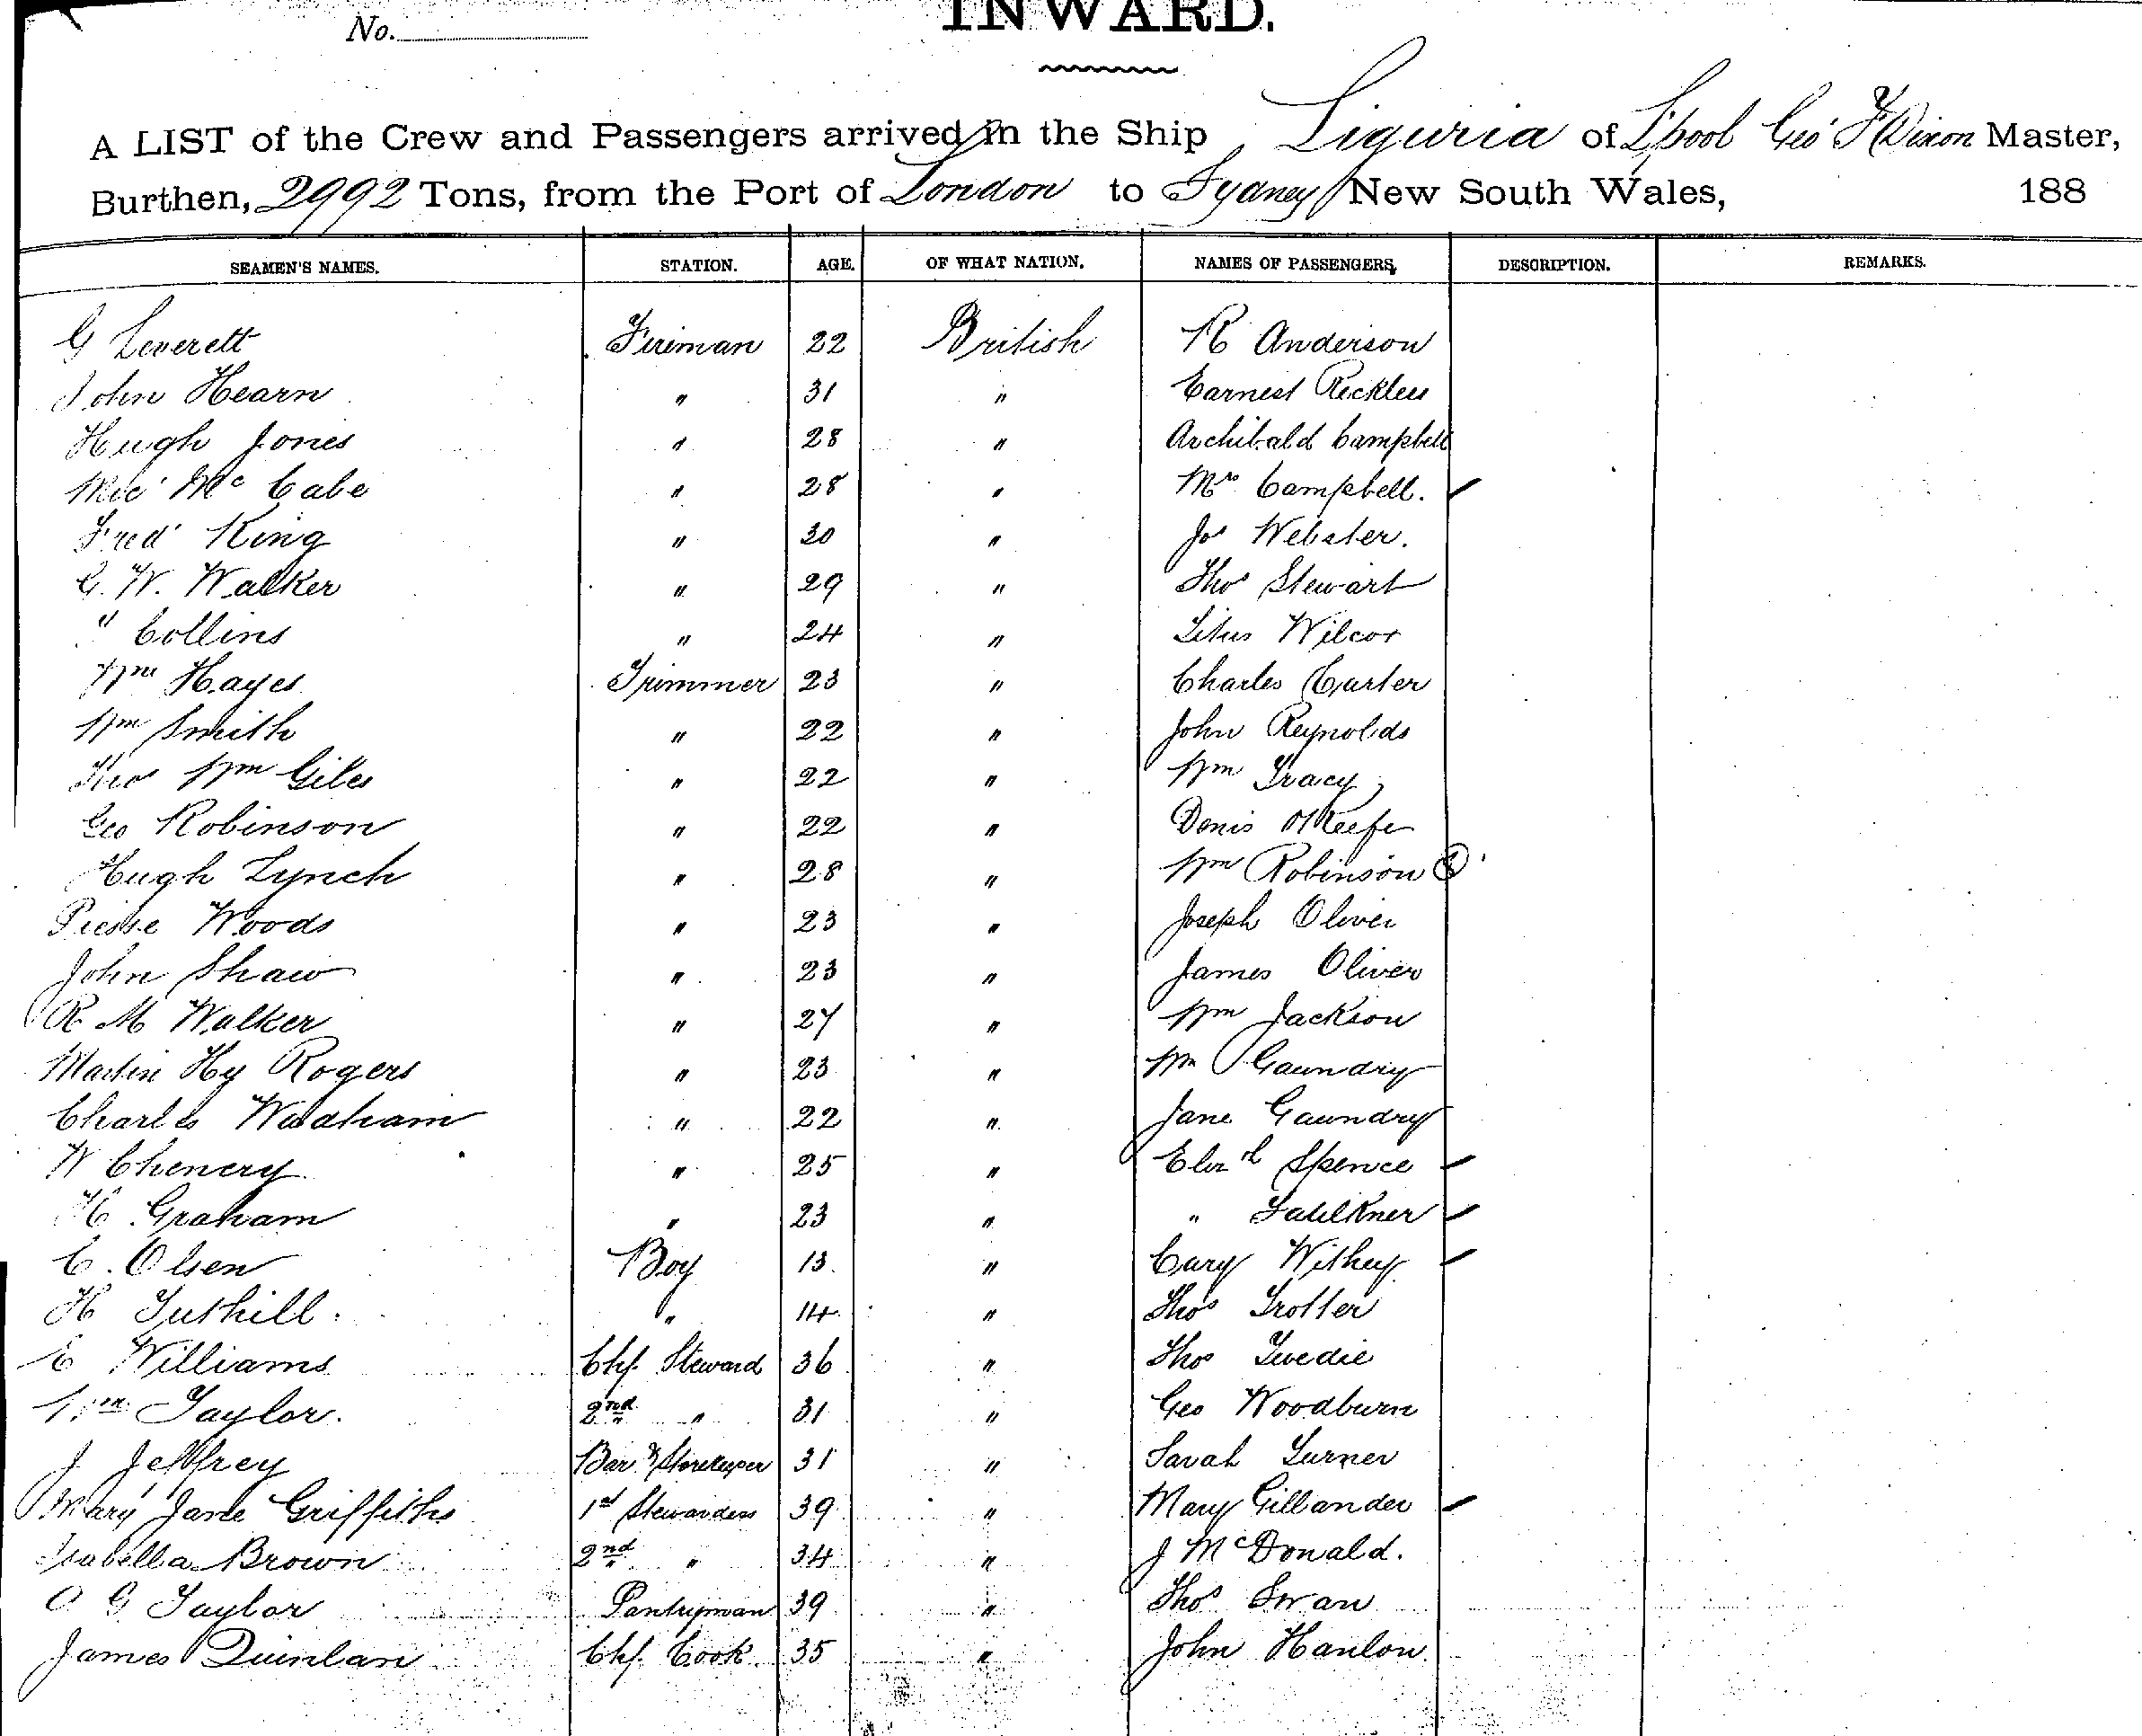 INWARD.
No.
A LIST of the Crew and Passengers arrived in the Ship Liguria of L'pool Geo F Dixon Master,
Burthen, 2992 Tons, from the Port of London to Sydney New South Wales, 188
SEAMEN'S NAMES. STATION. AGE. OF WHAT NATION. NAMES OF PASSENGERS, DESCRIPTION. REMARKS.
G Leverett Fireman 22 British R Anderson
John Hearn " 31 " Earnest Reckless
Hugh Jones " 28 " Archibald Campbell
Mic' Mc Cabe " 28 " Mrs Campbell. ✓
Fred' King " 30 " Jos Webster.
G. W. Walker " 29 " Thos Stewart
" Collins " 24 " Titus Wilcox
Wm Hayes Trimmer 23 " Charles Carter
Wm Smith " 22 " John Reynolds
Thos Wm Giles " 22 " Wm Tracy
Geo Robinson " 22 " Denis O'Keefe
Hugh Lynch " 28 " Wm Robinson
Piesse Woods " 23 " Joseph Oliver
John Shaw " 23 " James Oliver
R M Walker " 27 " Wm Jackson
Martin Hy Rogers " 23 " Wm Gaundry
Charles Wadham " 22 " Jane Gaundry
W Chenery " 25 " Elizth Spence ✓
H Graham " 23 " " Faulkner ✓
C. Olsen Boy 13 " Cary Withey ✓
H Tuthill. " 14 " Thos Trotter
E Williams Chf. Steward 36 " Thos Twedie
Wm Taylor. 2nd " 31 " Geo Woodburn
J Jeffrey Bar & Storekeeper 31 " Sarah Turner
Mary Jane Griffiths 1st Stewardess 39 " Mary Gillander ✓
Isabella Brown 2nd " 34 " J McDonald.
O G Taylor Pantryman 39 " Thos Swan
James Quinlan Chf. Cook 35 " John Hanlon.